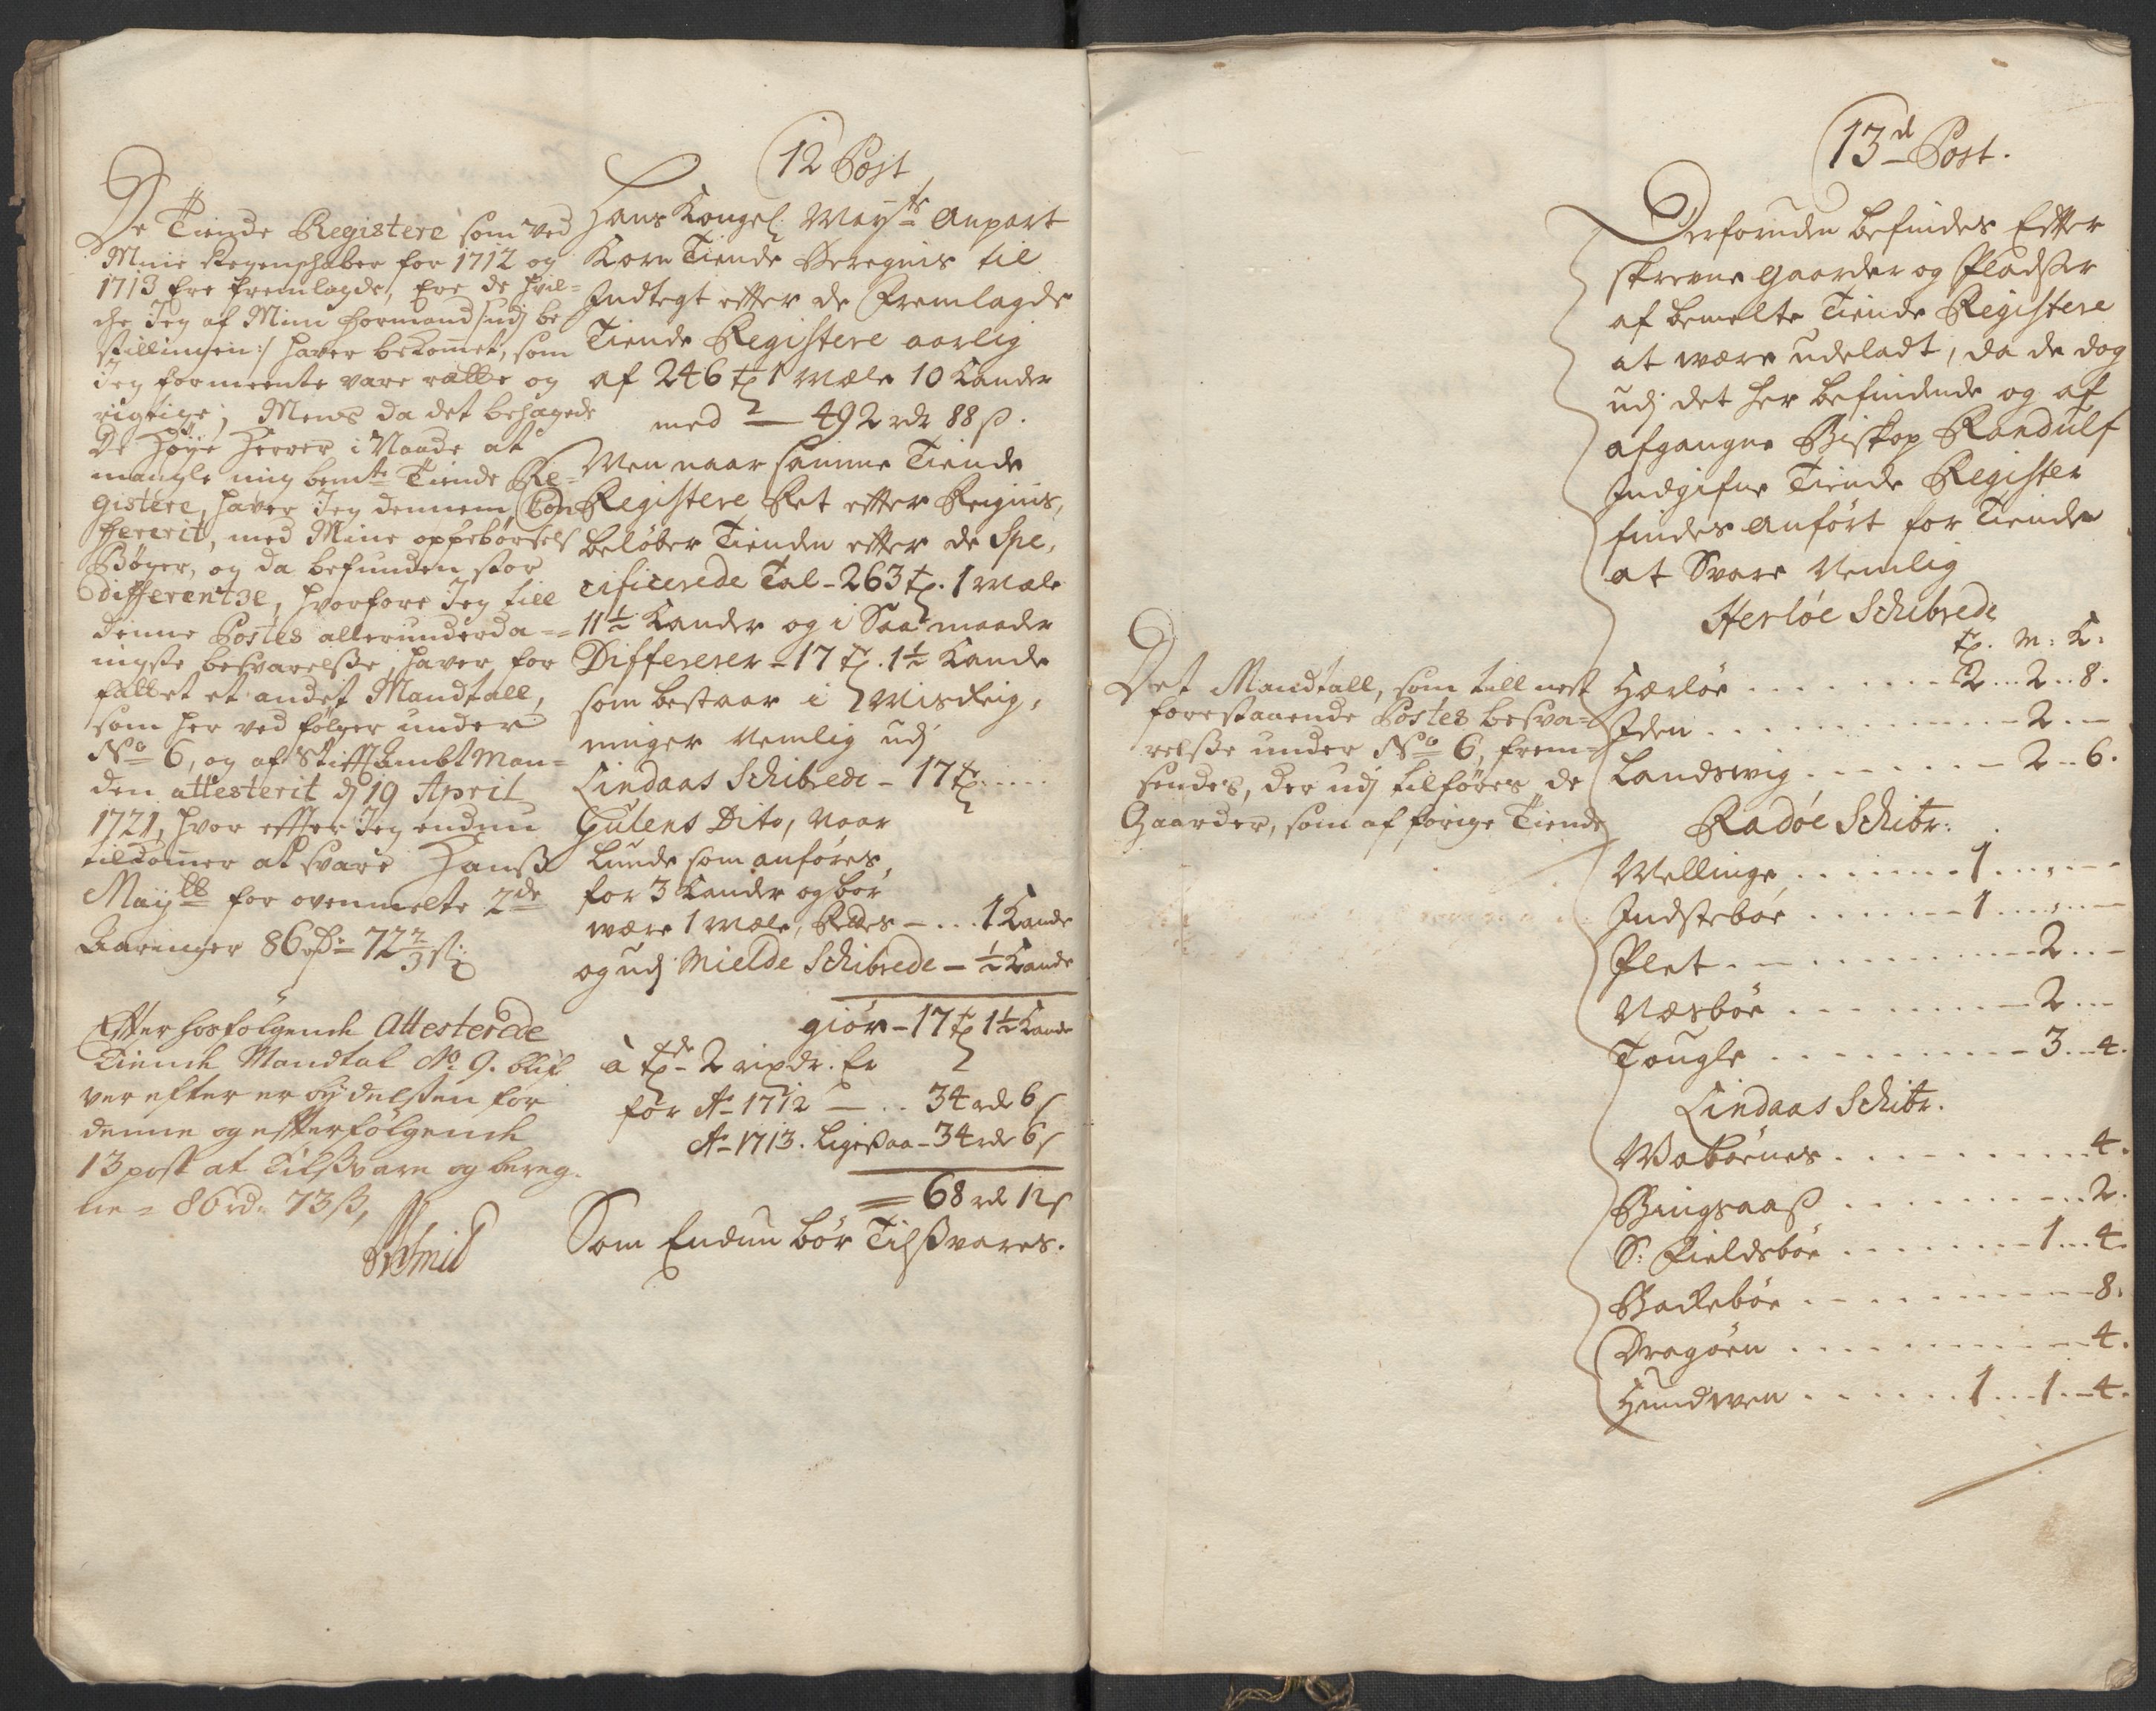 De Tiende Registere som ved
Mine Regenschaber for 1712 og
1713 ere fremlagde, ere de hvil-
che Jeg af Mine formand /: udj be
stillingen :/ hafver bekommet, som
Jeg formeente vare rætte og
rigtige; Mens da det behagede
De Høye Herrer i Naade at
mangle mig bemte Tiende Re-
gistere, hafver Jeg dennem Con
fererit, med Mine oppebørsels
Bøger, og da befunden stor
differentze, hvorfore Jeg till
denne Postes allerunderda-
nigste besvarelsse, hafver for
fattet et andet Mandtall,
som her ved følger under
No 6, og af Stifftambtman-
den attesterit d 19 April
1721, hvor effter Jeg endnu
tilkommer at svare Hanss
Mayts for ovenmelte 2de
Aaringer 86 rd: 72 2/3 s:
Efter hosfölgende Attesterede
Tiende Mandtal No. 9. blif
ver efter er bydelsen for
denne og efterfölgende
13 post at Tilsvare og bereg-
ne = 86 rd. 73 ß,
Schmid
12 Post
Hans Kongel Mayts Anpart
Korn Tiende Beregnis til
Indtegt efter de fremlagde
Tiende Registere aarlig
af 246 tr 1 Mæle 10 Kander
med — 492 rdr 88 ß.
Men naar samme Tiende
Registere Ret efter Regnis,
beløber Tienden efter de Spe,
cificerede Tal - 263 tr. 1 Mæle
11½ Kander og i Saa maader
Differerer - 17 tr. 1½ Kande
som bestaar i Misreig,
ninger Nemlig udj
Lindaas Schibrede - 17 tr
Gulens Dito, Naar
Lunde som anføres,
for 3 Kander og bør
være 1 Mæle, — ... 1 Kande
og udj Mielde Schibrede - ½ Kande
giör - 17 tr 1½ Kande
à tr 2 rixdr. Er
for Ao 1712 — .. 34 rdr 6 s
Ao 1713. ligesaa - 34 rdr 6 s
= 68 rdr 12 s
Som Endnu bör Tilsvares.
13de Post.
Derforuden befindes Efter
skrevne gaarder og Pladser
af bemelte Tiende Registere
at være udeladt, da de dog
udj det her befindende og af
afgangne Biskop Randulf
Indgifne Tiende Register
findes anført for Tiende
at Svare Nemlig
Herløe Schibrede
tr. M: K:
Det Mandtall, som till nest
forestaaende Postes besva-
relsse under No 6, frem-
sendes, der udj tilføres de
Gaarder, som af forige Tiende
Hærløe ........ 2 .. 2 .. 8.
Iden ........ 2 .. -
Landsvig ...... 2 .. 6.
Radöe Schibr:
Mellinge ...... 1 ......
Indstebøe ...... 1 ......
Plet ........ 2 .. -
Næsbøe ........ 2 ...
Tougle ........ 3 .. 4.
Lindaas Schibr.
Wabörnes ........ 4.
Bingsaaß ........ 2.
S: Fieldsbøe ........ 1 .. 4.
Backebøe ........ 8.
Dragøen ........ 4.
Hundven ...... 1 .. 1 .. 4.